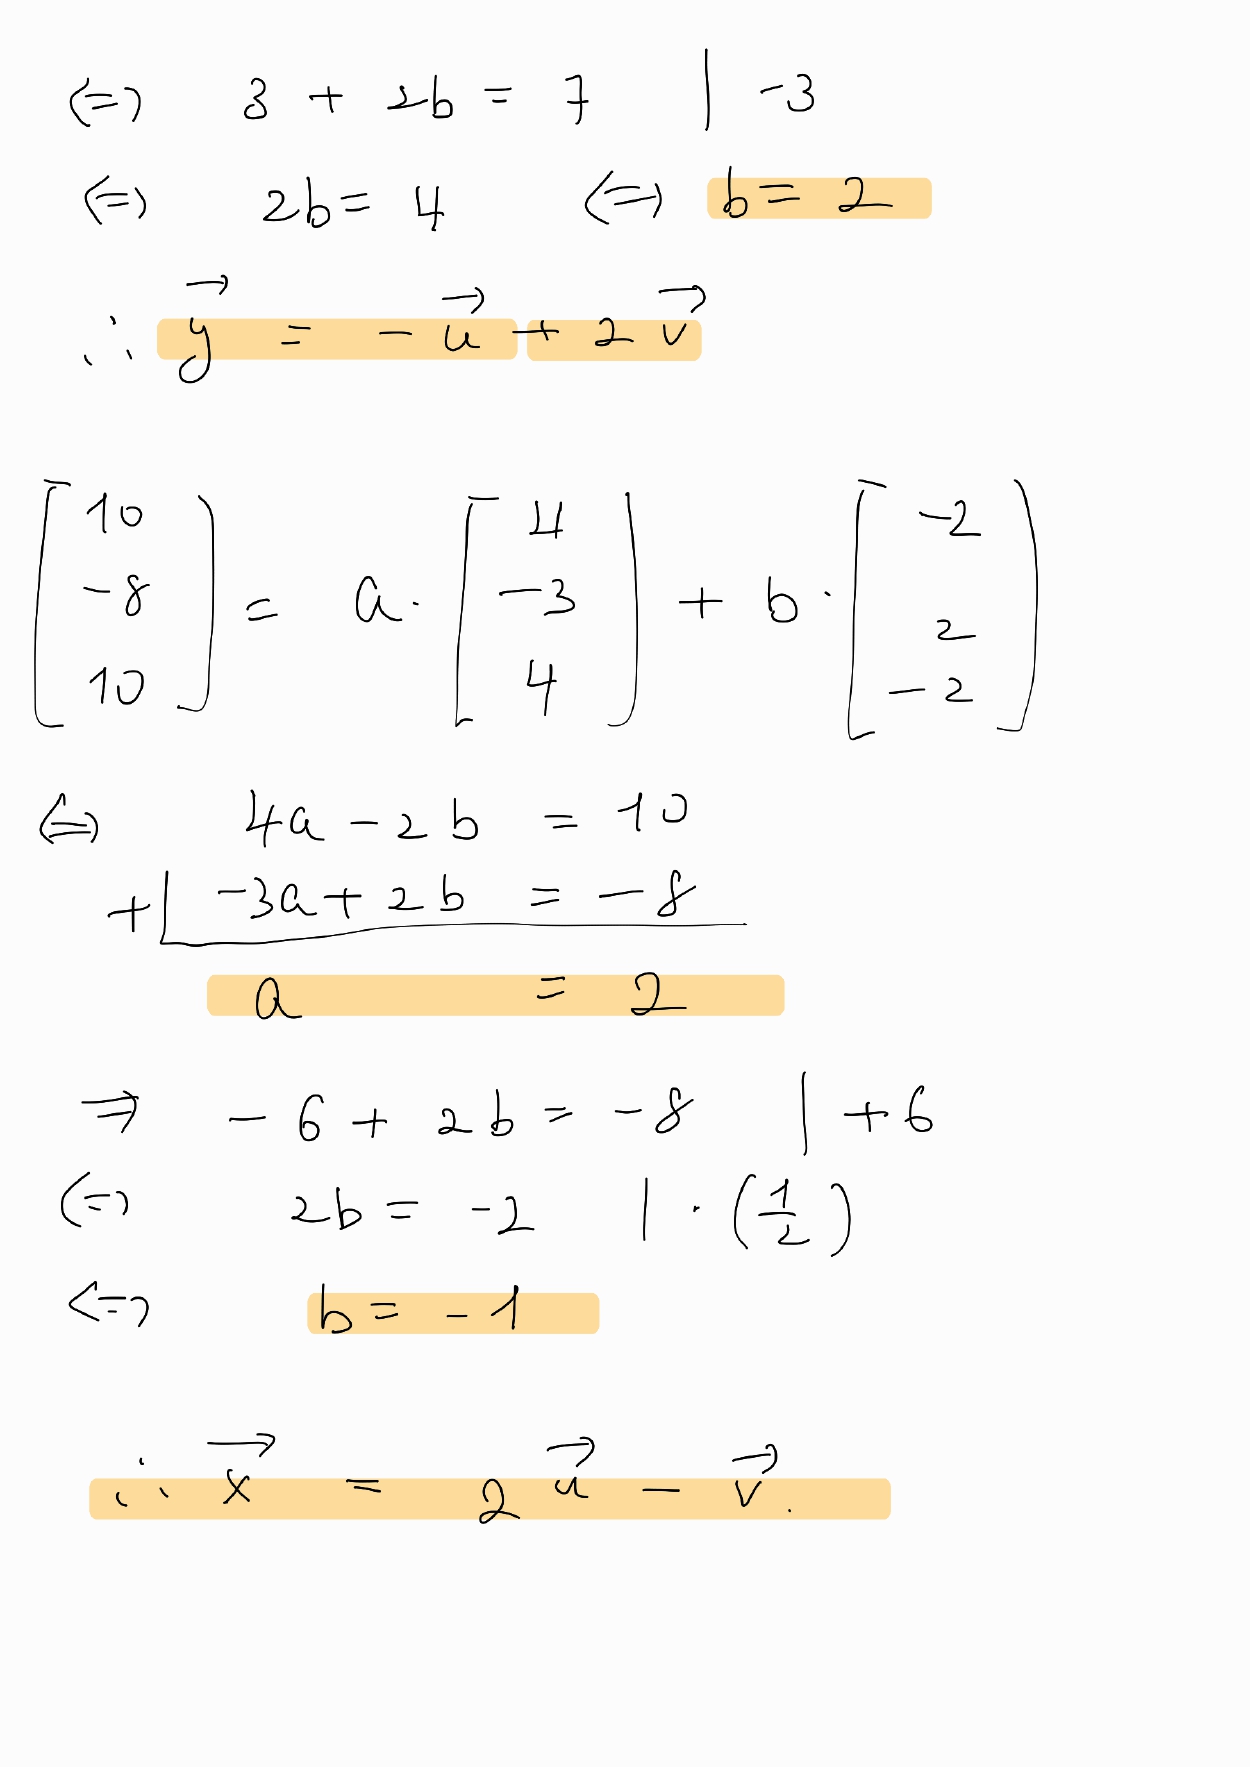 ⇔ 3 + 2b = 7 | -3
⇔ 2b = 4 ⇔ b = 2
∴ y⃗ = - u⃗ + 2 v⃗
[10 -8 10] = a · [4 -3 4] + b · [-2 2 -2]
⇔ 4a - 2b = 10
+| -3a + 2b = -8
a = 2
⇒ -6 + 2b = -8 | +6
⇔ 2b = -2 | · (1/2)
⇔ b = -1
∴ x⃗ = 2 u⃗ - v⃗.